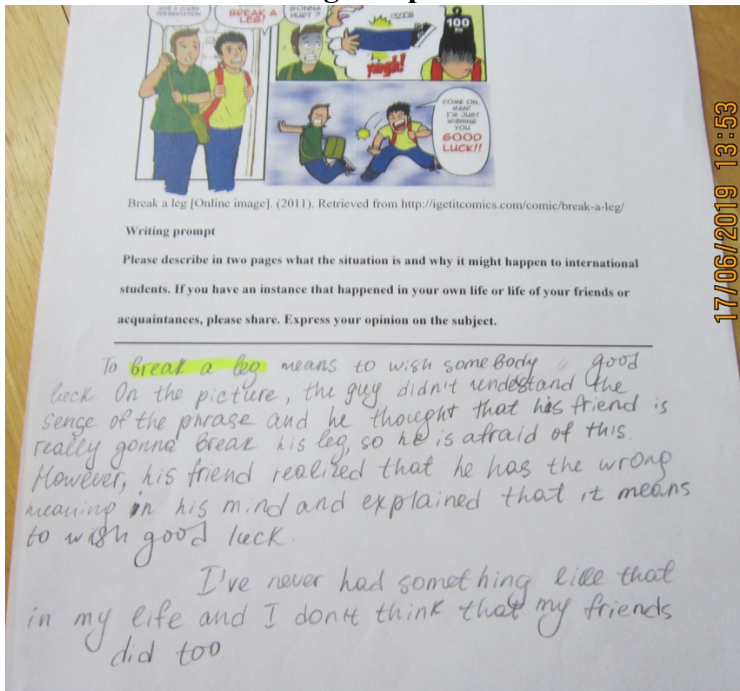 GIVE A CLASS
PRESENTATION
BREAK A
LEG!
GONNA
HURT?
yargh!
100
KG
COME ON,
MAN!
I'M JUST
WISHING
YOU
GOOD
LUCK!!
17/06/2019 13:53
Break a leg [Online image]. (2011). Retrieved from http://igetitcomics.com/comic/break-a-leg/
Writing prompt
Please describe in two pages what the situation is and why it might happen to international
students. If you have an instance that happened in your own life or life of your friends or
acquaintances, please share. Express your opinion on the subject.
To break a leg means to wish somebody a good
luck. On the picture, the guy didn't undestand the
sense of the phrase and he thought that his friend is
really gonna break his leg, so he is afraid of this.
However, his friend realized that he has the wrong
meaning in his mind and explained that it means
to wish good luck.
I've never had something like that
in my life and I don't think that my friends
did too